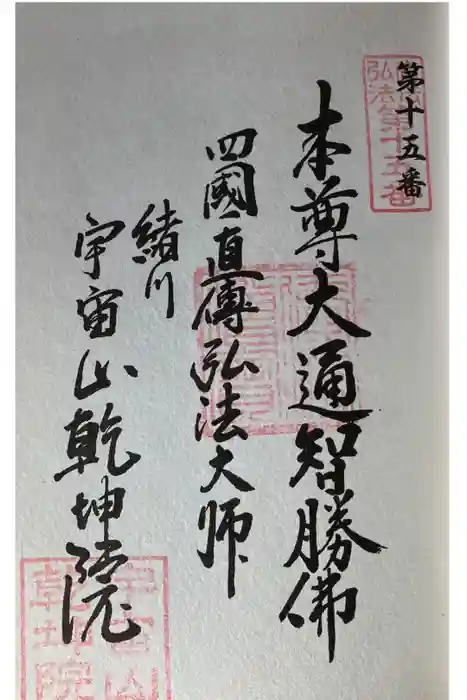 第十五番
弘法第十五番
本尊大通智勝佛
四國直傳弘法大師
緒川
宇宙山乾坤院
宇宙山
乾坤院